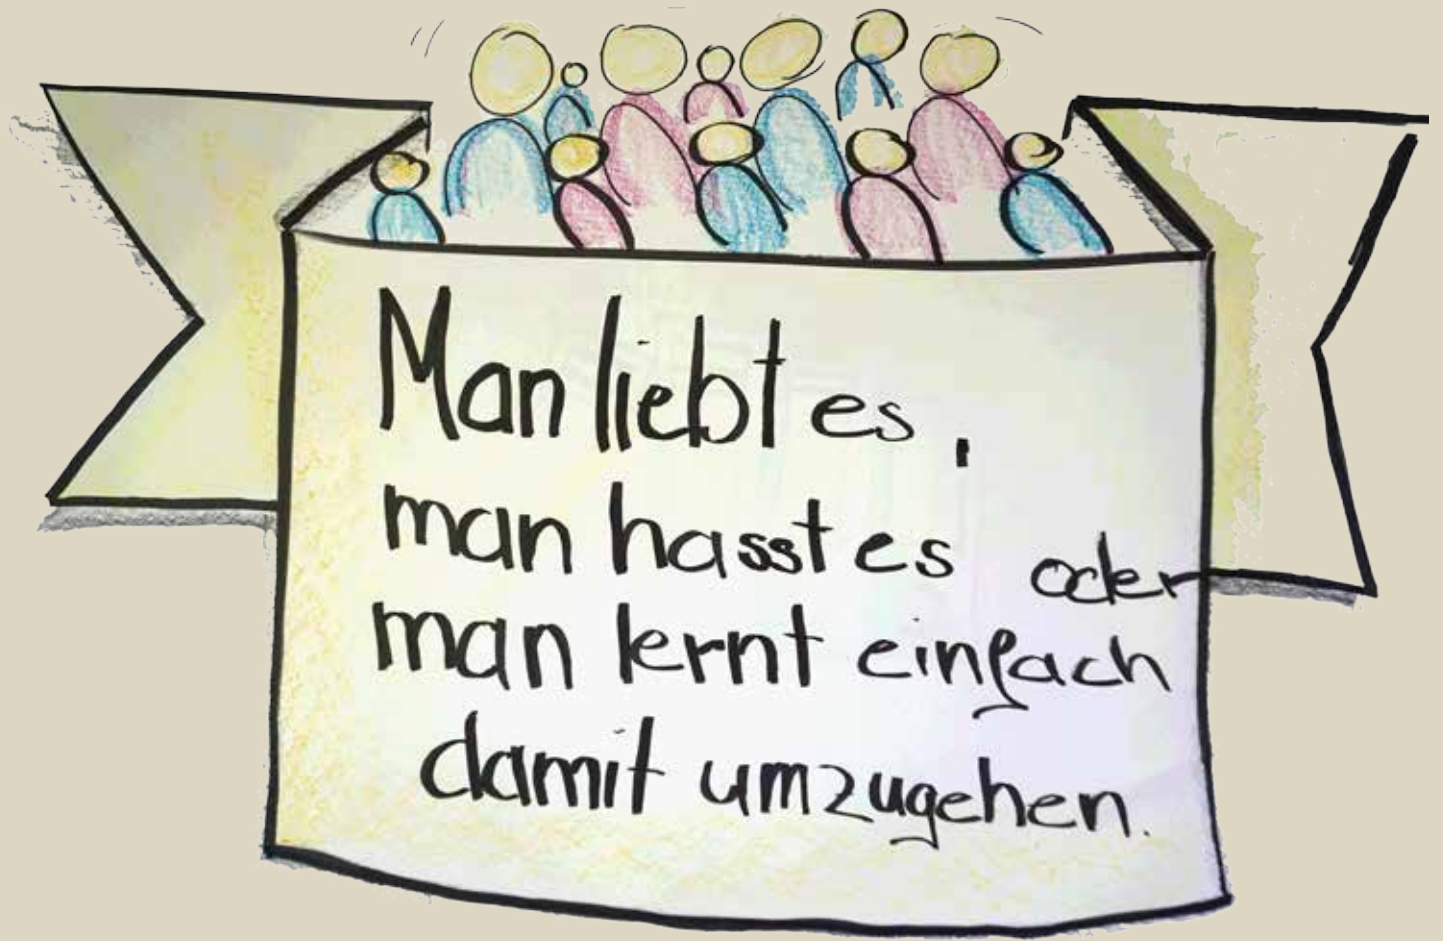 Man liebt es,
man hasst es oder
man lernt einfach
damit umzugehen.